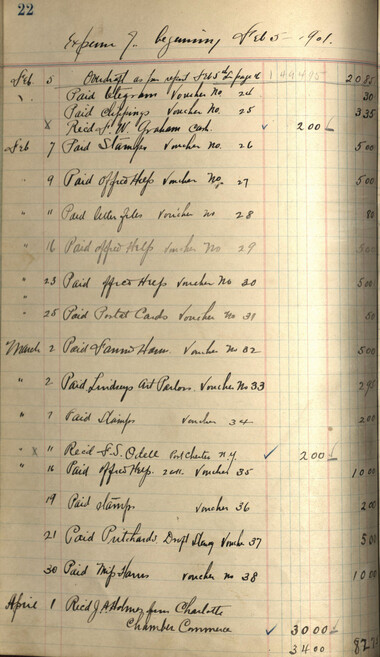 22
Expense beginning Feb 5 - 1901.
Feb 5 Overdraft as per report page 149495 2085
" Paid telegram Voucher No 24 30
" Paid Clippings Voucher No. 25 335
x Recd W. Graham Cash. ✓ 200
Feb 7 Paid Stamps Voucher No. 26 500
" 9 Paid office Help Voucher No. 27 500
" 11 Paid letter files Voucher no 28 80
" 16 Paid office Help Voucher No 29 500
" 23 Paid office Help Voucher No 30 500
"
" 25 Paid Postal Cards Voucher No 31 50
March 2 Paid Fannie Harris. Voucher No 32 500
" 2 Paid Lindseys Art Parlors. Voucher No 33 295
" 7 Paid Stamps Voucher 34 200
" x 11 Recd F. S. Odell Port Chester N.Y. ✓ 200
" 16 Paid office Help. Voucher 35 1000
19 Paid stamps Voucher 36 200
21 Paid Pritchards. Voucher 37 500
30 Paid Miss Harris Voucher no 38 1000
April 1 Recd J A Holmes from Charlotte
Chamber Commerce ✓ 3000
3400 82